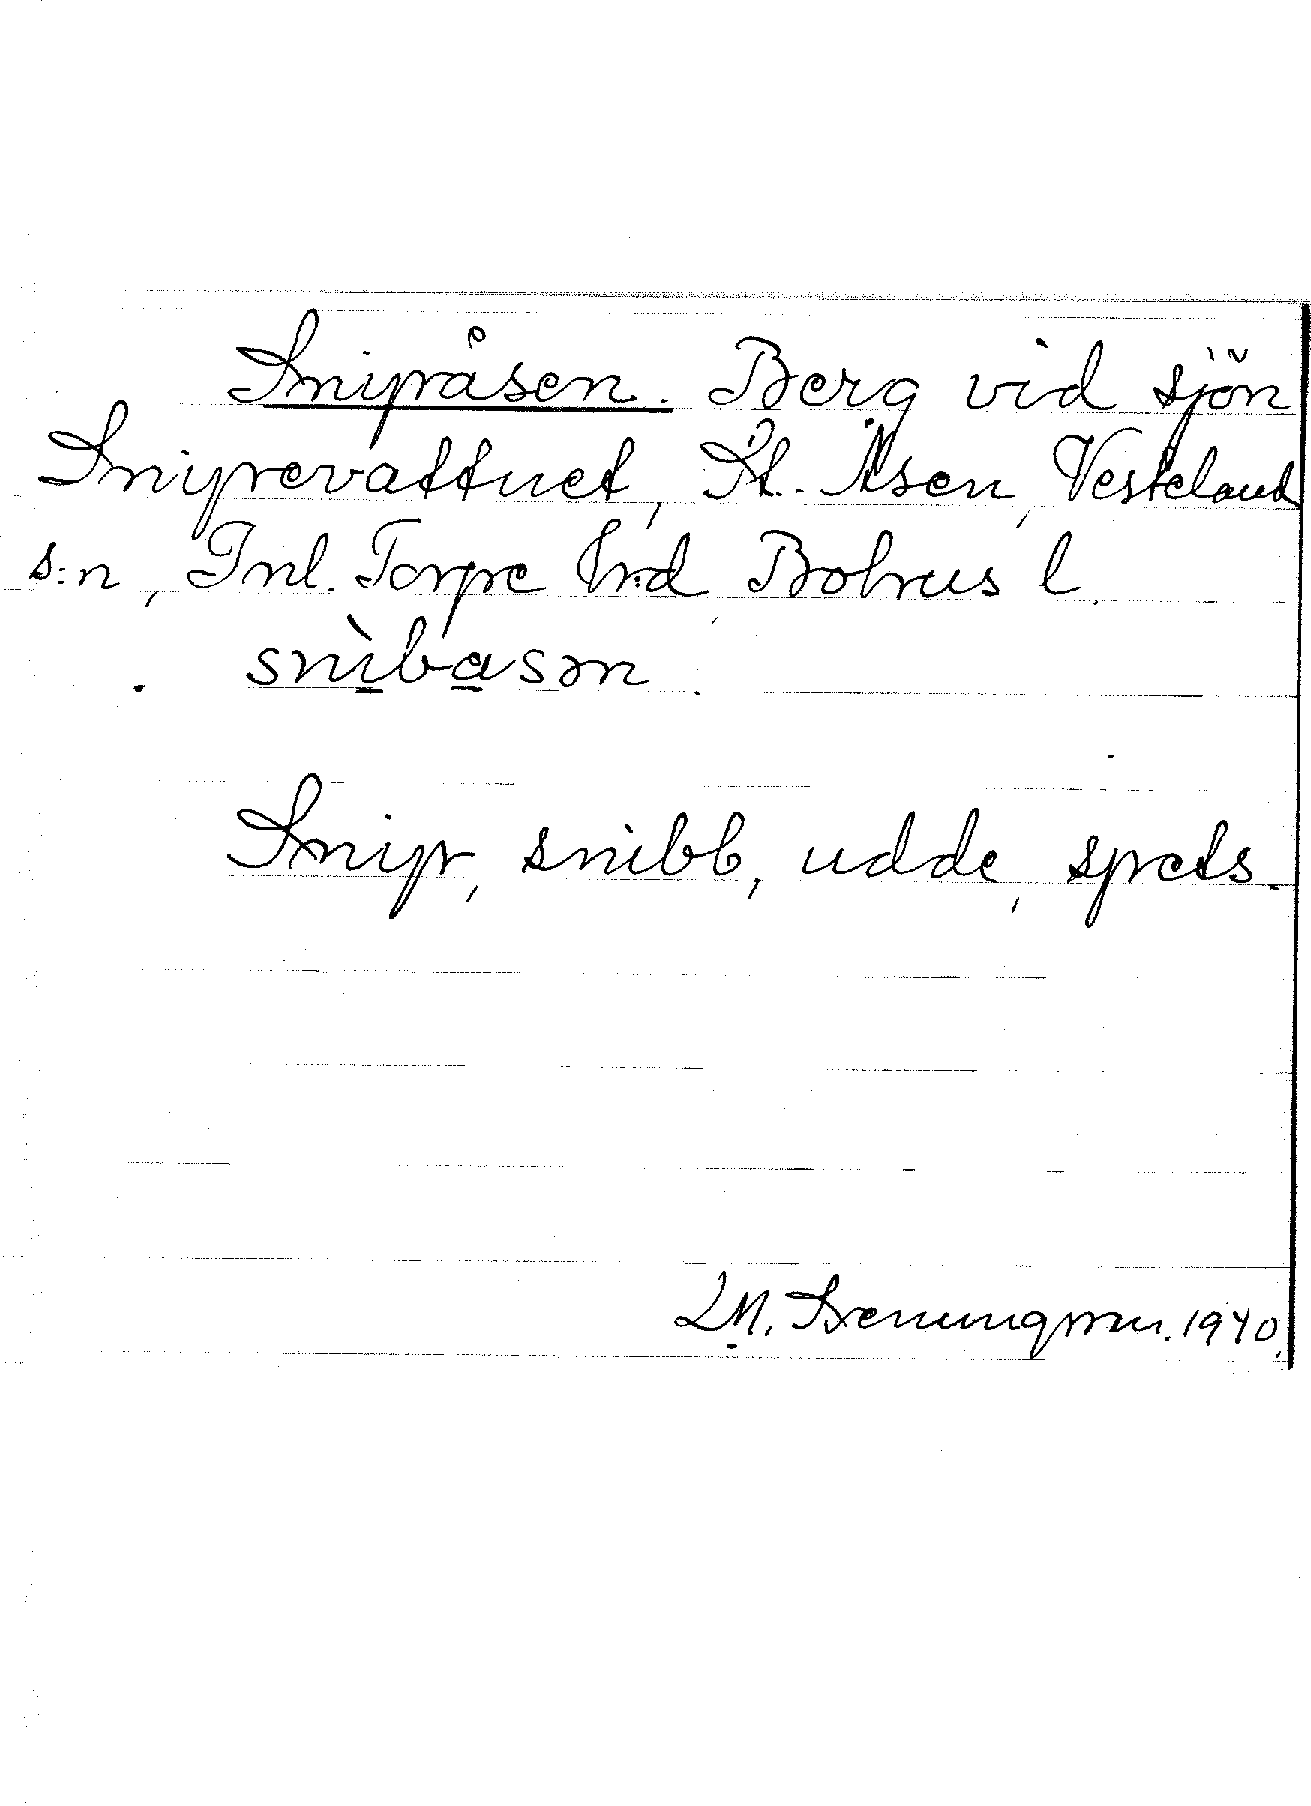 Snipåsen. Berg vid sjön
Snipevattnet, St. Åsen, Vesteland
s:n, Inl. Torpe h:d Bohus l.
snìbasən
Snip, snibb, udde, spets.
1940.